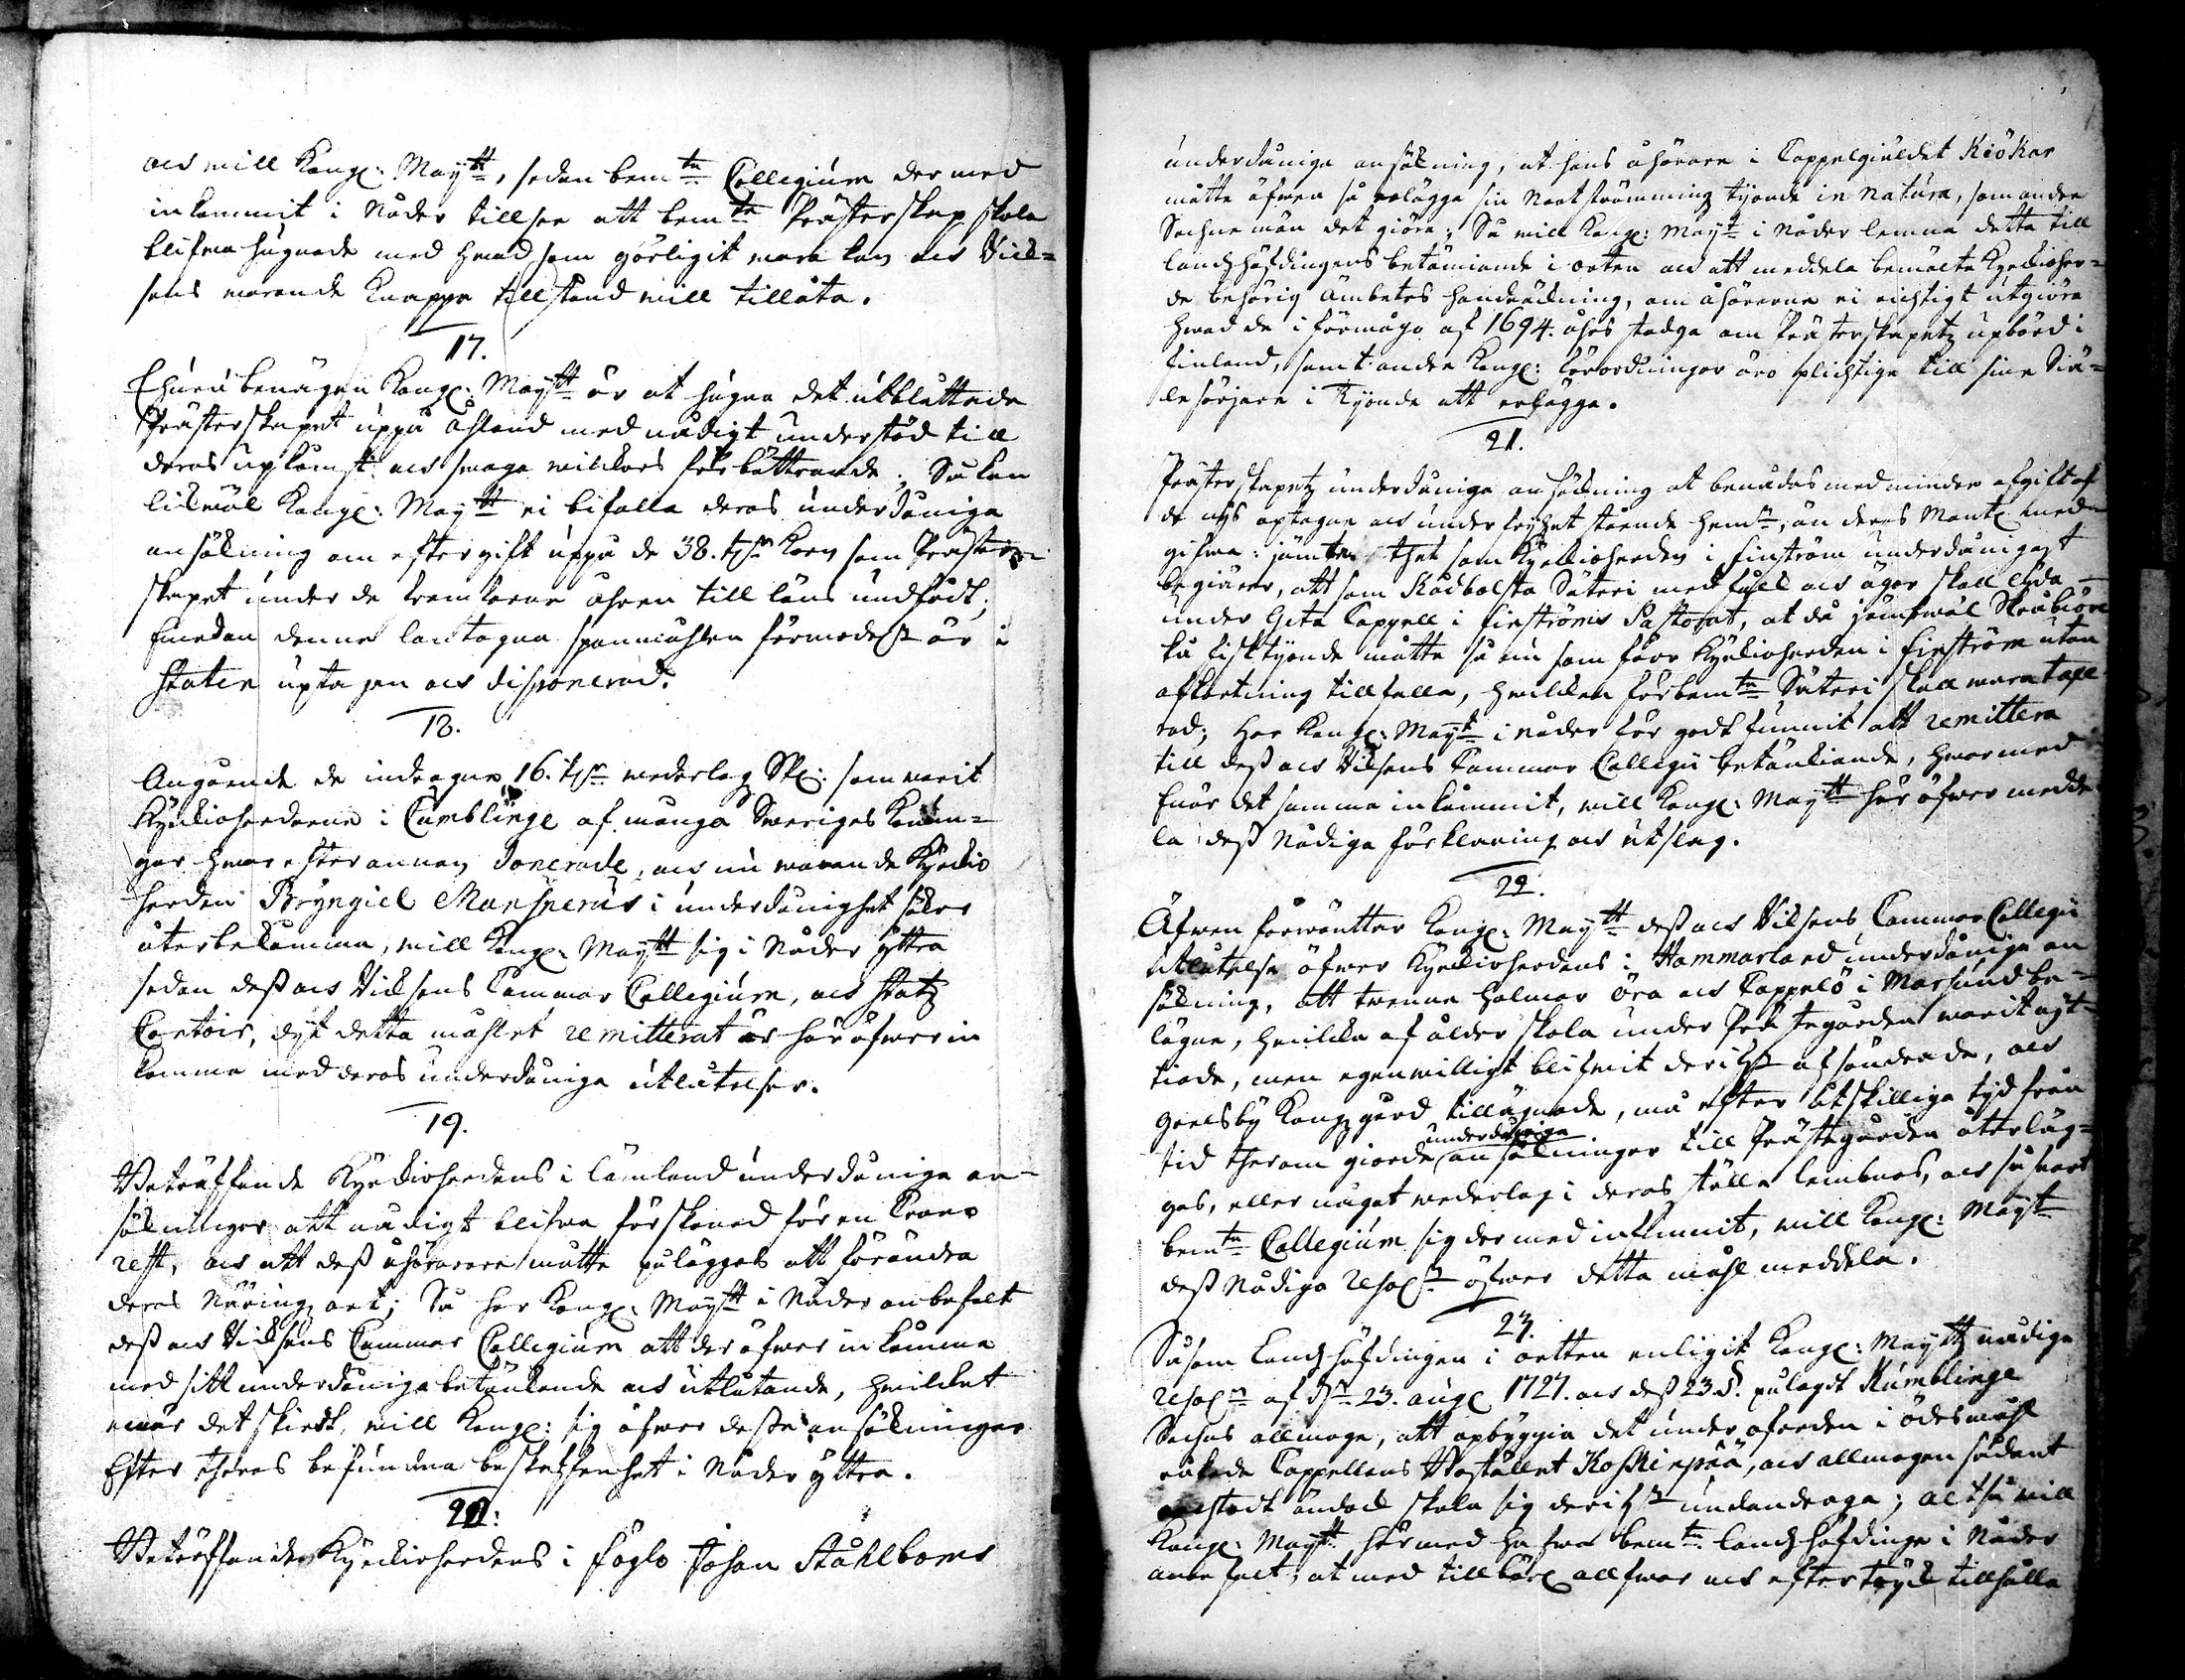 och will Kongl: Maytt, sedan bemte Collegium der med
inkommit i Nåder tillsee att bemte Prästerskap skola
blifwa hugnade med hwad som görligit wara kan och Rick=
sens warande knappa tillstånd will tillåta.
17.
Ehuru benägen Kongl: Maytt är at hugna det utblåttade
Prästerskapet uppå Åhland med nådigt understöd till
deras upkomst och swaga willkors förbättrande; Så kan
lickwäl Kongl: Maytt ei bifalla deras underdåniga
ansökning om eftergift uppå de 38. tr Korn som Prester=
skapet under de tremkorne åhren till låns undfådt;
Emedan denne lantagna spannmåhlen förmodel är i
Staten uptagen och disponerad.
18.
Angående de indragne 16. tr wederlag Spl: som warit
Kyrckioherdarne i Cumblinge af många Sweriges Konun=
gar hwar efter annan donerade, och nu warande Kyrckio
herden Bryngiel Mansnerus i underdånighet söker
återbekomma, will Kongl: Maytt sig i Nåder yttra
sedan dess och Ricksens Cammar Collegium, och Statz
Contoir, dijt detta måhlet remitterat är här öfwer in
komma med deras underdåniga utlåtelser.
19.
Beträffande Kyrckioherdens i Lämland underdåniga an=
sökningar att nådigt blifwa förskonad för en Crono
rest, och att dess åhörare måtte påläggas att förändra
deras Näringz art; Så har Kongl: Maytt i Nåder anbefalt
dess och Ricksens Cammar Collegium att der öfwer inkomma
med sitt underdåniga betänkande och utlåtande, hwilcket
enär det skiedt, will Kongl: sig öfwer desse ansökningar
Efter theras befundna beskaffenhet i Nåder yttra.
20:
Beträffande Kyrckioherdens i Föglö Johan Ståhlboms
underdåniga ansökning, at hans åhörare i Cappelgiäldet Kiökar
måtte äfwen så erlägga sin Nootströmming tijonde in Natura, som andre
Sochne män det giöra; Så will Kongl: Mayt i Nåder lemna detta till
landzhöfdingens betämiande i orten och att meddela bemälte Kyrckioher=
de behörig Ämbetes handräckning, om åhörerne ei richtigt utgiöra
hwad de i förmågo af 1694. åhrs stadga om Prästerskapetz upbörd i
Finland, samt andre Kongl: Förordningar äro plichtige till sine Siä=
lesörjare i Tijonde att erlägga.
21.
Prästerskapetz underdåniga ansökning at benådas med mindre afgift af
de nys optagne och under fryhet stående hem, än deras Mantl med
gifwa: jämte thet som Kyrckioherden i Finström underdånigast
begiärer, att som Rådbolsta Säteri med full och ägor skall lyda
under Geta Cappell i Finströms Pastorat, at då jämwäl
kå fisktijonde måtte så nu som förr Kyrckioherden i Finström utan
afkortning tillfalla, hwilcken förbemte Säteri skall wara taxe
rad; Har Kongl: Maytt i nåder för godt funnit att remittera
till dess och Ricksens Cammar Collegii betänkiande, hwarmed
Enär det samma inkommit, will Kongl: Maytt här öfwer medde
la dess Nådiga förklaring och utslag.
22.
Äfwen förwäntar Kongl: Maytt dess och Ricksens Cammar Collegii
utlåtelse öfwer Kyrckioherdens i Hammarland underdåniga an
sökning, att twenne holmar Öra och Cappelö i Marsund be=
lägne, hwilcka af ålder skola under Prästegården warit nyt=
tiade, men egenwilligt blifwit derifrån afsöndrade, och
Grelsby Kongzgård tillägnade, må efter åtskilliga tyd från
tid therom giorde underdåniga ansökningar till Prästegården återläg=
gas, eller något wederlag i deras ställe lembnas, och så snart
bemte Collegium sig der med inkommit, will Kongl: Mayt
dess Nådiga Resol öfwer detta måhl meddela.
23.
Såsom landzhöfdingen i orten enligit Kongl: Maytz nådiga
Resoln af d. 23. Augl 1727. och dess 23. §. pålagdt Kumblinge
Sochns allmoge, att opbyggia det under ofreden i ödesmåhl
råkade Cappellans Bostället Koskenpää, och allmogen sådant
oachtadt ändock skola sig derifrån undandraga; altså will
Kongl: Maytt härmed hafwa bemte landzhöfdinge i Nåder
anbefalt, at med tillbörl allfwar och eftertryck tillhålla